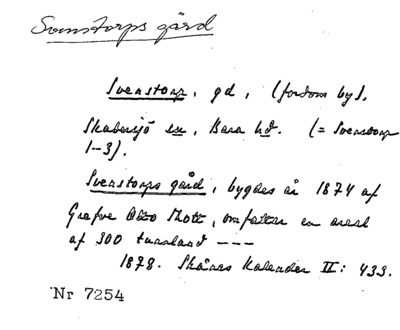 Svenstorps gård
Svenstorp, gd, (fordom by).
Skabersjö sn, Bara hd. (= Svenstorp
1-3).
Svenstorps gård, bygdes år 1874 af
Grefve Otto Thott, omfattar en areal
af 300 tunnland ---
1878. Skånes Kalender II: 433.
Nr 7254